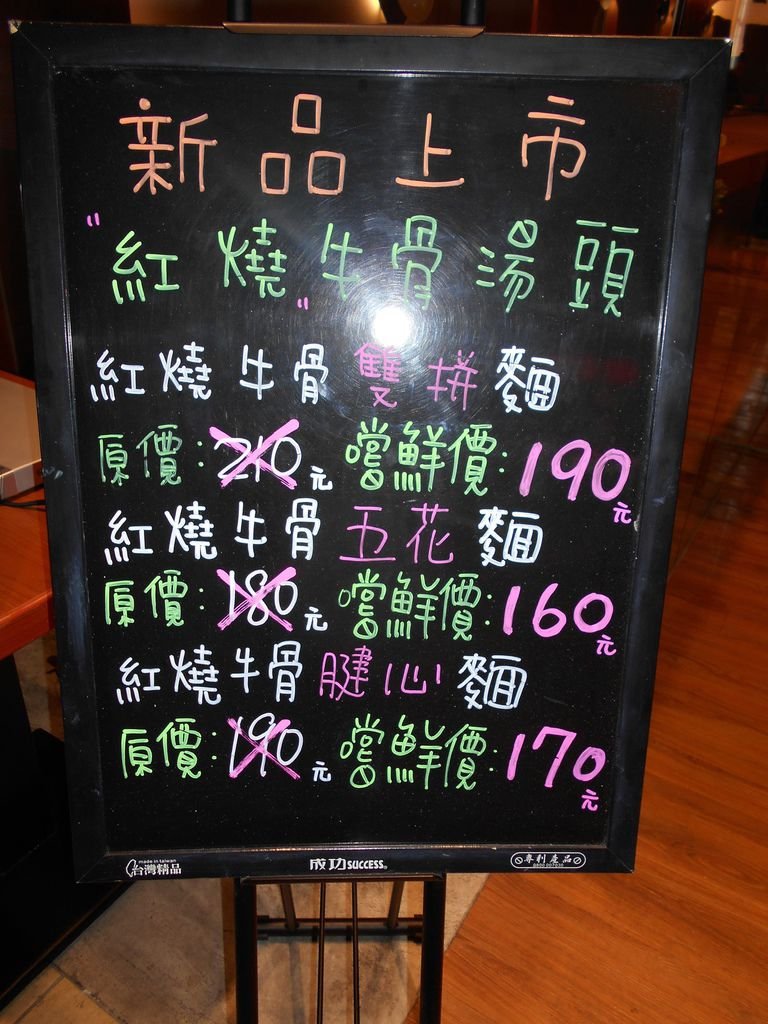 新品上市
"紅燒牛骨湯頭"
紅燒牛骨雙拼麵
原價:210元 嚐鮮價:190元
紅燒牛骨五花麵
原價:180元 嚐鮮價:160元
紅燒牛骨腱心麵
原價:190元 嚐鮮價:170元
made in taiwan
台灣精品
成功SUCCESS
專利產品